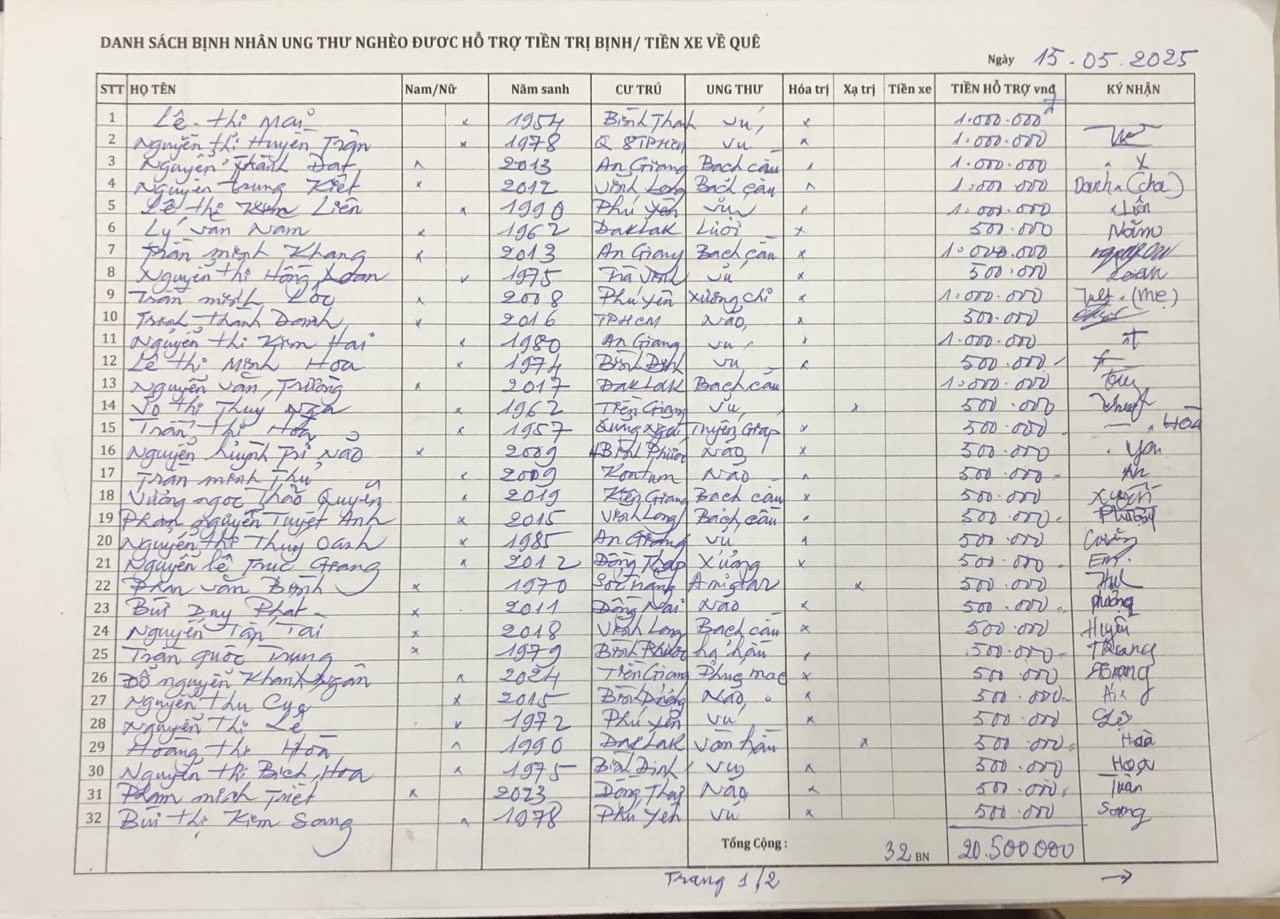 DANH SÁCH BỊNH NHÂN UNG THƯ NGHÈO ĐƯƠC HỖ TRỢ TIỀN TRỊ BỊNH/ TIỀN XE VỀ QUÊ
Ngày 15-05.2025
STT HỌ TÊN Nam/Nữ Năm sanh CƯ TRÚ UNG THƯ Hóa trị Xạ trị Tiền xe TIỀN HỖ TRỢ vnđ KÝ NHẬN
1 Lê thị Mai x 1954 Bình Thạnh Vú x 1.000.000đ
2 Nguyễn thị Huyền Trân x 1978 Q 8 TPHCM Vú x 1.000.000
3 Nguyễn Thành Đạt x 2013 An Giang Bạch cầu x 1.000.000 x
4 Nguyễn trung Kiệt x 2012 Vĩnh Long Bạch cầu x 1.000.000 Danh (cha)
5 Lê thị Kim Liên x 1990 Phú yên Vú x 1.000.000 Liên
6 Lý văn Năm x 1962 DakLak Lưỡi x 500.000 Năm
7 Trần minh Khang x 2013 An Giang Bạch cầu x 1.000.000
8 Nguyễn thị Hồng Loan x 1975 Trà Vinh Vú x 500.000 Loan
9 Trần minh Lộc x 2008 Phú yên Xương chi x 1.000.000 (mẹ)
10 Trịnh thành Danh x 2016 TPHCM Não x 500.000
11 Nguyễn thị Kim Hai x 1980 An Giang Vú x 1.000.000
12 Lê thị Minh Hoa x 1974 Bình Định Vú x 500.000
13 Nguyễn văn Trường x 2017 DakLak Bạch cầu 1.000.000
14 Võ thị Thuý Nga x 1962 Tiền Giang Vú x 500.000
15 Trần thị Hoà x 1957 Quảng Ngãi Tuyến Giáp x 500.000 Hoà
16 Nguyễn Huỳnh Trí Não x 2009 Bình Phước Não x 500.000
17 Trần minh Thư x 2009 Kontum Não x 500.000
18 Vương ngọc Thảo Quyên x 2019 Kiên Giang Bạch cầu x 500.000
19 Phan nguyễn Tuyết Anh x 2015 Vĩnh Long Bạch cầu x 500.000 Phượng
20 Nguyễn thị Thuý Oanh x 1985 An Giang Vú x 500.000
21 Nguyễn lê Trúc Giang x 2012 Đồng Tháp Xương x 500.000 Em
22 Phan văn Bình x 1970 Sóc Trăng Amiđan x 500.000
23 Bùi Duy Phát x 2011 Đồng Nai Não x 500.000 phượng
24 Nguyễn Tấn Tài x 2018 Vĩnh Long Bạch cầu x 500.000 Huyền
25 Trần Quốc Trung x 1979 Bình Phước hạ hầu x 500.000 Trung
26 Đỗ nguyễn Khánh Ngân x 2024 Tiền Giang Phúc mạc x 500.000
27 Nguyễn thu x 2015 Bình Dương Não 500.000
28 Nguyễn Thị Lê x 1972 Phú yên Vú x 500.000 Lê
29 Hoàng thị Hoà x 1990 DakLak Vòm hầu x 500.000 Hoà
30 Nguyễn thị Bích Hoa x 1975 Bình Định Vú x 500.000 Hoa
31 Phạm minh Triết x 2023 Đồng Tháp Não x 500.000 Tuân
32 Bùi thị Kim Sang x 1978 Phú yên Vú x 500.000 Sang
Tổng Cộng : 32 BN 20.500.000
Trang 1/2 →